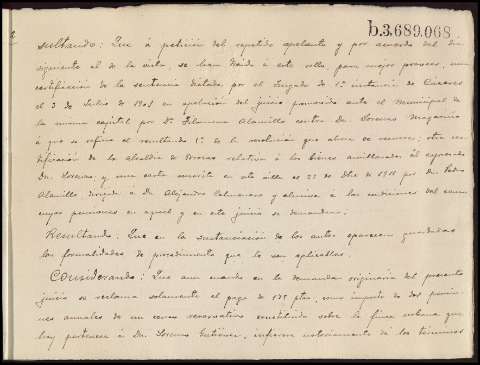 b.3.689.068
sultando: Que á petición del repetido apelante y por acuerdo del dia
siguiente al de la vista, se han traido á este rollo para mejor proveer, una
certificación de la sentencia dictada por el Juzgado de 1ª instancia de Cáceres
el 3 de Julio de 1905 en apelación del juicio promovido ante el Municipal de
la misma capital por Dª Filomena Alamillo contra Dn Lorenzo
á que se refiere el resultando 1º de la resolución que ahora se recurre; otra cer-
tificación de la Alcaldia de relativa á los bienes amillarados al expresado
Dn Lorenzo, y una carta escrita en esta villa en 22 de Dbre de 1911 por Dn Pedro
Alamillo dirigida á Dn Alejandro y alusiva á las condiciones del censo
cuyas pensiones en aquel y en este juicio se demandan.
Resultando: Que en la sustanciación de los autos aparecen guardadas
las formalidades de procedimiento que le son aplicables.
Considerando: Que aun cuando en la demanda originaria del presente
juicio se reclama solamente el pago de ptas, como importe de dos pensio-
nes anuales de un censo reservativo constituido sobre la finca urbana que
hoy pertenece á Dn Lorenzo Gutiérrez, infiérese notoriamente de los términos